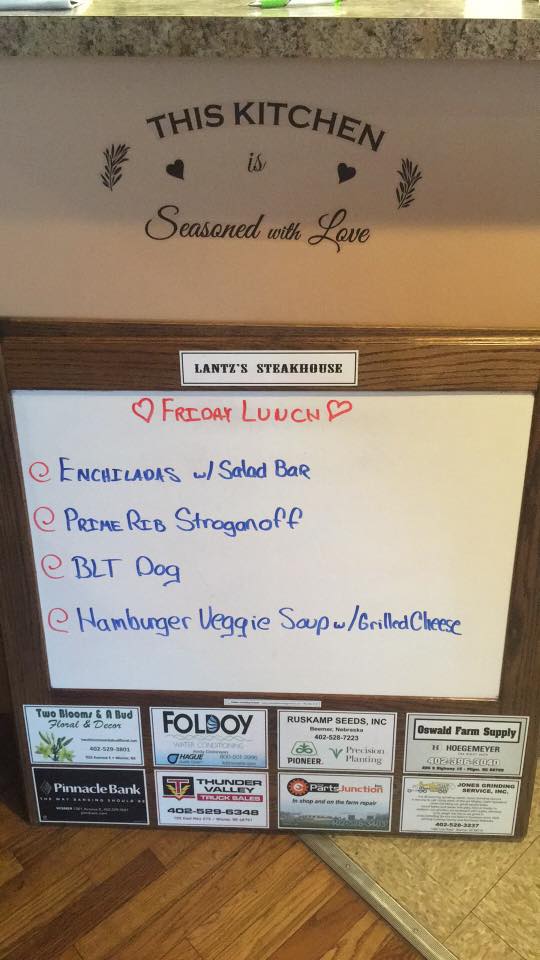 THIS KITCHEN
is
Seasoned with Love
LANTZ'S STEAKHOUSE
♡ FRIDAY LUNCH ♡
ENCHILADAS w/ Salad BAR
PRIME RIB Stroganoff
BLT Dog
Hamburger Veggie Soup w/Grilled Cheese
Two Blooms & A Bud
Floral & Decor
402-529-3801
FOLDOY
WATER CONDITIONING
HAGUE
800-001-3996
RUSKAMP SEEDS, INC
Beemer, Nebraska
402-528-7223
PIONEER.
Precision
Planting
Oswald Farm Supply
HOEGEMEYER
402-396-3040
Pinnacle Bank
THE WAY BANKING SHOULD BE
THUNDER
VALLEY
TRUCK SALES
402-529-6348
Parts Junction
In shop and on the farm repair
JONES GRINDING
SERVICE, INC.
402-528-3237